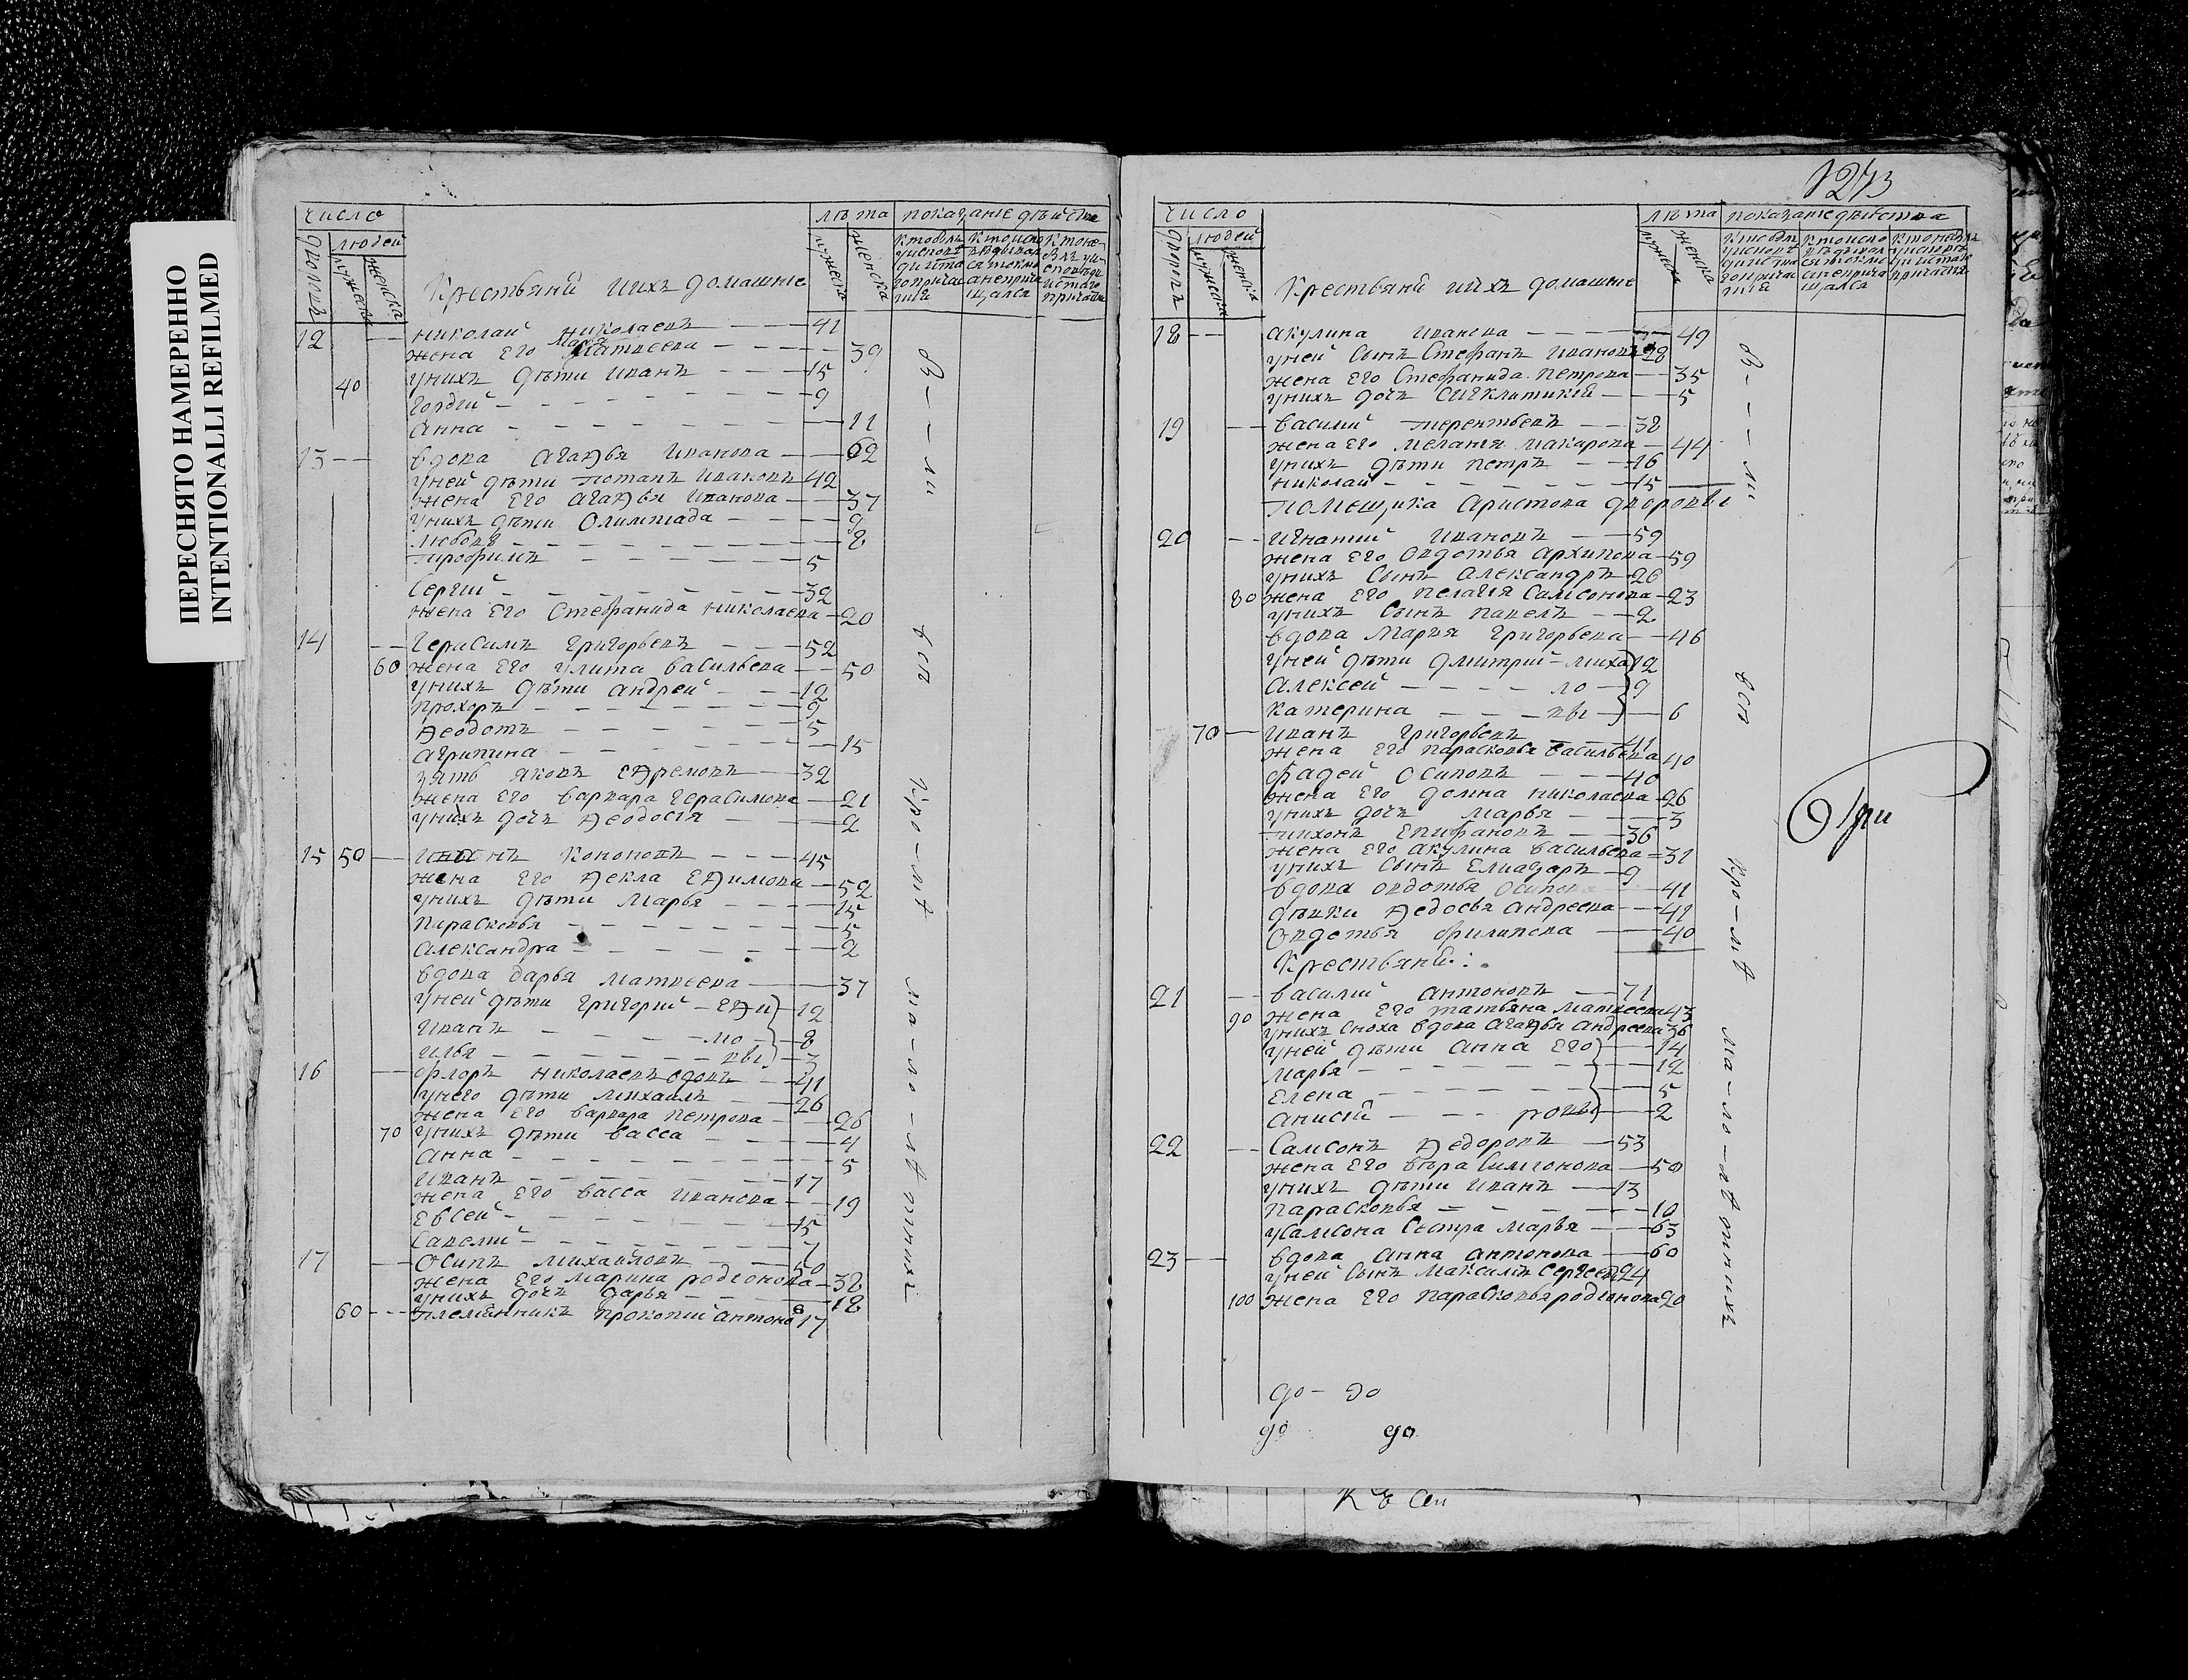 ПЕРЕСНЯТО НАМЕРЕННО
INTENTIONALLI REFILMED
число
лѣта показанїе дѣйства
дворовъ
людей
мужеска
женска
Крестьяни ихъ домашнїе
мужеска
женска
12 -- николай николаевъ --- 41
жена его Марья матвеева ---- 39
40 унихъ дѣти иванъ --- 15
гордей ------ 9
анна ------ 11
13 -- вдова агаѳья иванова -- 62
уней дѣти потапъ ивановъ 42
жена его агаѳья иванова -- 37
унихъ дѣти Олимпїада --- 9
любовь ------ 8
трофимъ ----- 5
Сергїй ------ 32
жена его Стефанида николаева - 20
14 -- герасимъ григорьевъ --- 52
60 жена его улита васильева -- 50
унихъ дѣти андрей -- 12
прохоръ ------ 9
ѳеодотъ ----- 5
агрипина ----- 15
зять яковъ еѳремовъ -- 32
жена его варвара герасимова -- 21
унихъ дочь ѳеодосїя --- 2
15 50 -- кононовъ --- 45
жена его ѳекла еѳимова -- 52
унихъ дѣти марья ---- 15
парасковья ------ 5
александра ----- 2
вдова дарья матвеева --- 37
уней дѣти григорий - еѳи 12
иванъ ---- мо - 8
илья ----- вы - 3
16 -- флоръ николаевъ вдовъ -- 41
унего дѣти михаилъ -- 26
жена его варвара петрова -- 26
70 унихъ дѣти васса --- 4
анна ------- 5
иванъ ------ 17
жена его васса иванова -- 19
евсей ------ 15
савелий ------ 7
17 -- осипъ михайловъ --- 50
жена его марина родїонова - 38
унихъ дочь дарья ---- 18
60 -- племянникъ прокопий антоно 17
в -- ли
всп
про - мѣ
ма - ло - лѣтнихъ
1243
число
лѣта показанїе дѣйства
дворовъ
людей
мужеска
женска
Крестьяни ихъ домашнїе
мужеска
женска
18 -- акулина иванова ---- 49
уней Сынъ Стефанъ ивановъ 28
жена его Стефанида петрова -- 35
унихъ дочь --- 5
19 -- василий терентьевъ -- 38
жена его меланїя макарова - 44
унихъ дѣти петръ -- 16
николай ------ 15
помещика аристова дворовы
20 -- игнатий ивановъ -- 59
жена его овдотья архипова - 59
унихъ Сынъ александръ - 26
80 жена его пелагїя Самсонова - 23
унихъ Сынъ павелъ -- 2
вдова Марья григорьева -- 46
уней дѣти дмитрий - миха 12
алексей ---- ло - 9
катерина --- вы -- 6
70 -- иванъ григорьевъ -- 41
жена его парасковья васильева 40
фадей осиповъ --- 40
жена его домна николаева - 26
унихъ дочь марья --- 3
тихонъ епифановъ -- 36
жена его акулина васильева - 31
унихъ Сынъ елиазаръ - 9
вдова овдотья осипова -- 41
дѣвки ѳедосья андреева -- 41
овдотья филипова -- 40
Крестьяни:
21 -- василий антоновъ -- 71
90 жена его татьяна матвеева 43
унихъ Сноха вдова агаѳья андреева 36
уней дѣти анна его -- 14
марья ------- 12
елена ------- 5
анисїя --- ровы -- 2
22 -- Самсонъ ѳедоровъ -- 53
жена его вѣра Симїонова -- 50
унихъ дѣти иванъ -- 13
парасковья ----- 10
усамсона Сестра марья -- 63
23 -- вдова анна антонова -- 60
уней Сынъ максимъ Сергеевъ 24
100 жена его парасковья родїонова 20
в --- ли
всп
про - мѣ
ма - ло - лѣтнихъ
при
до - до
до до